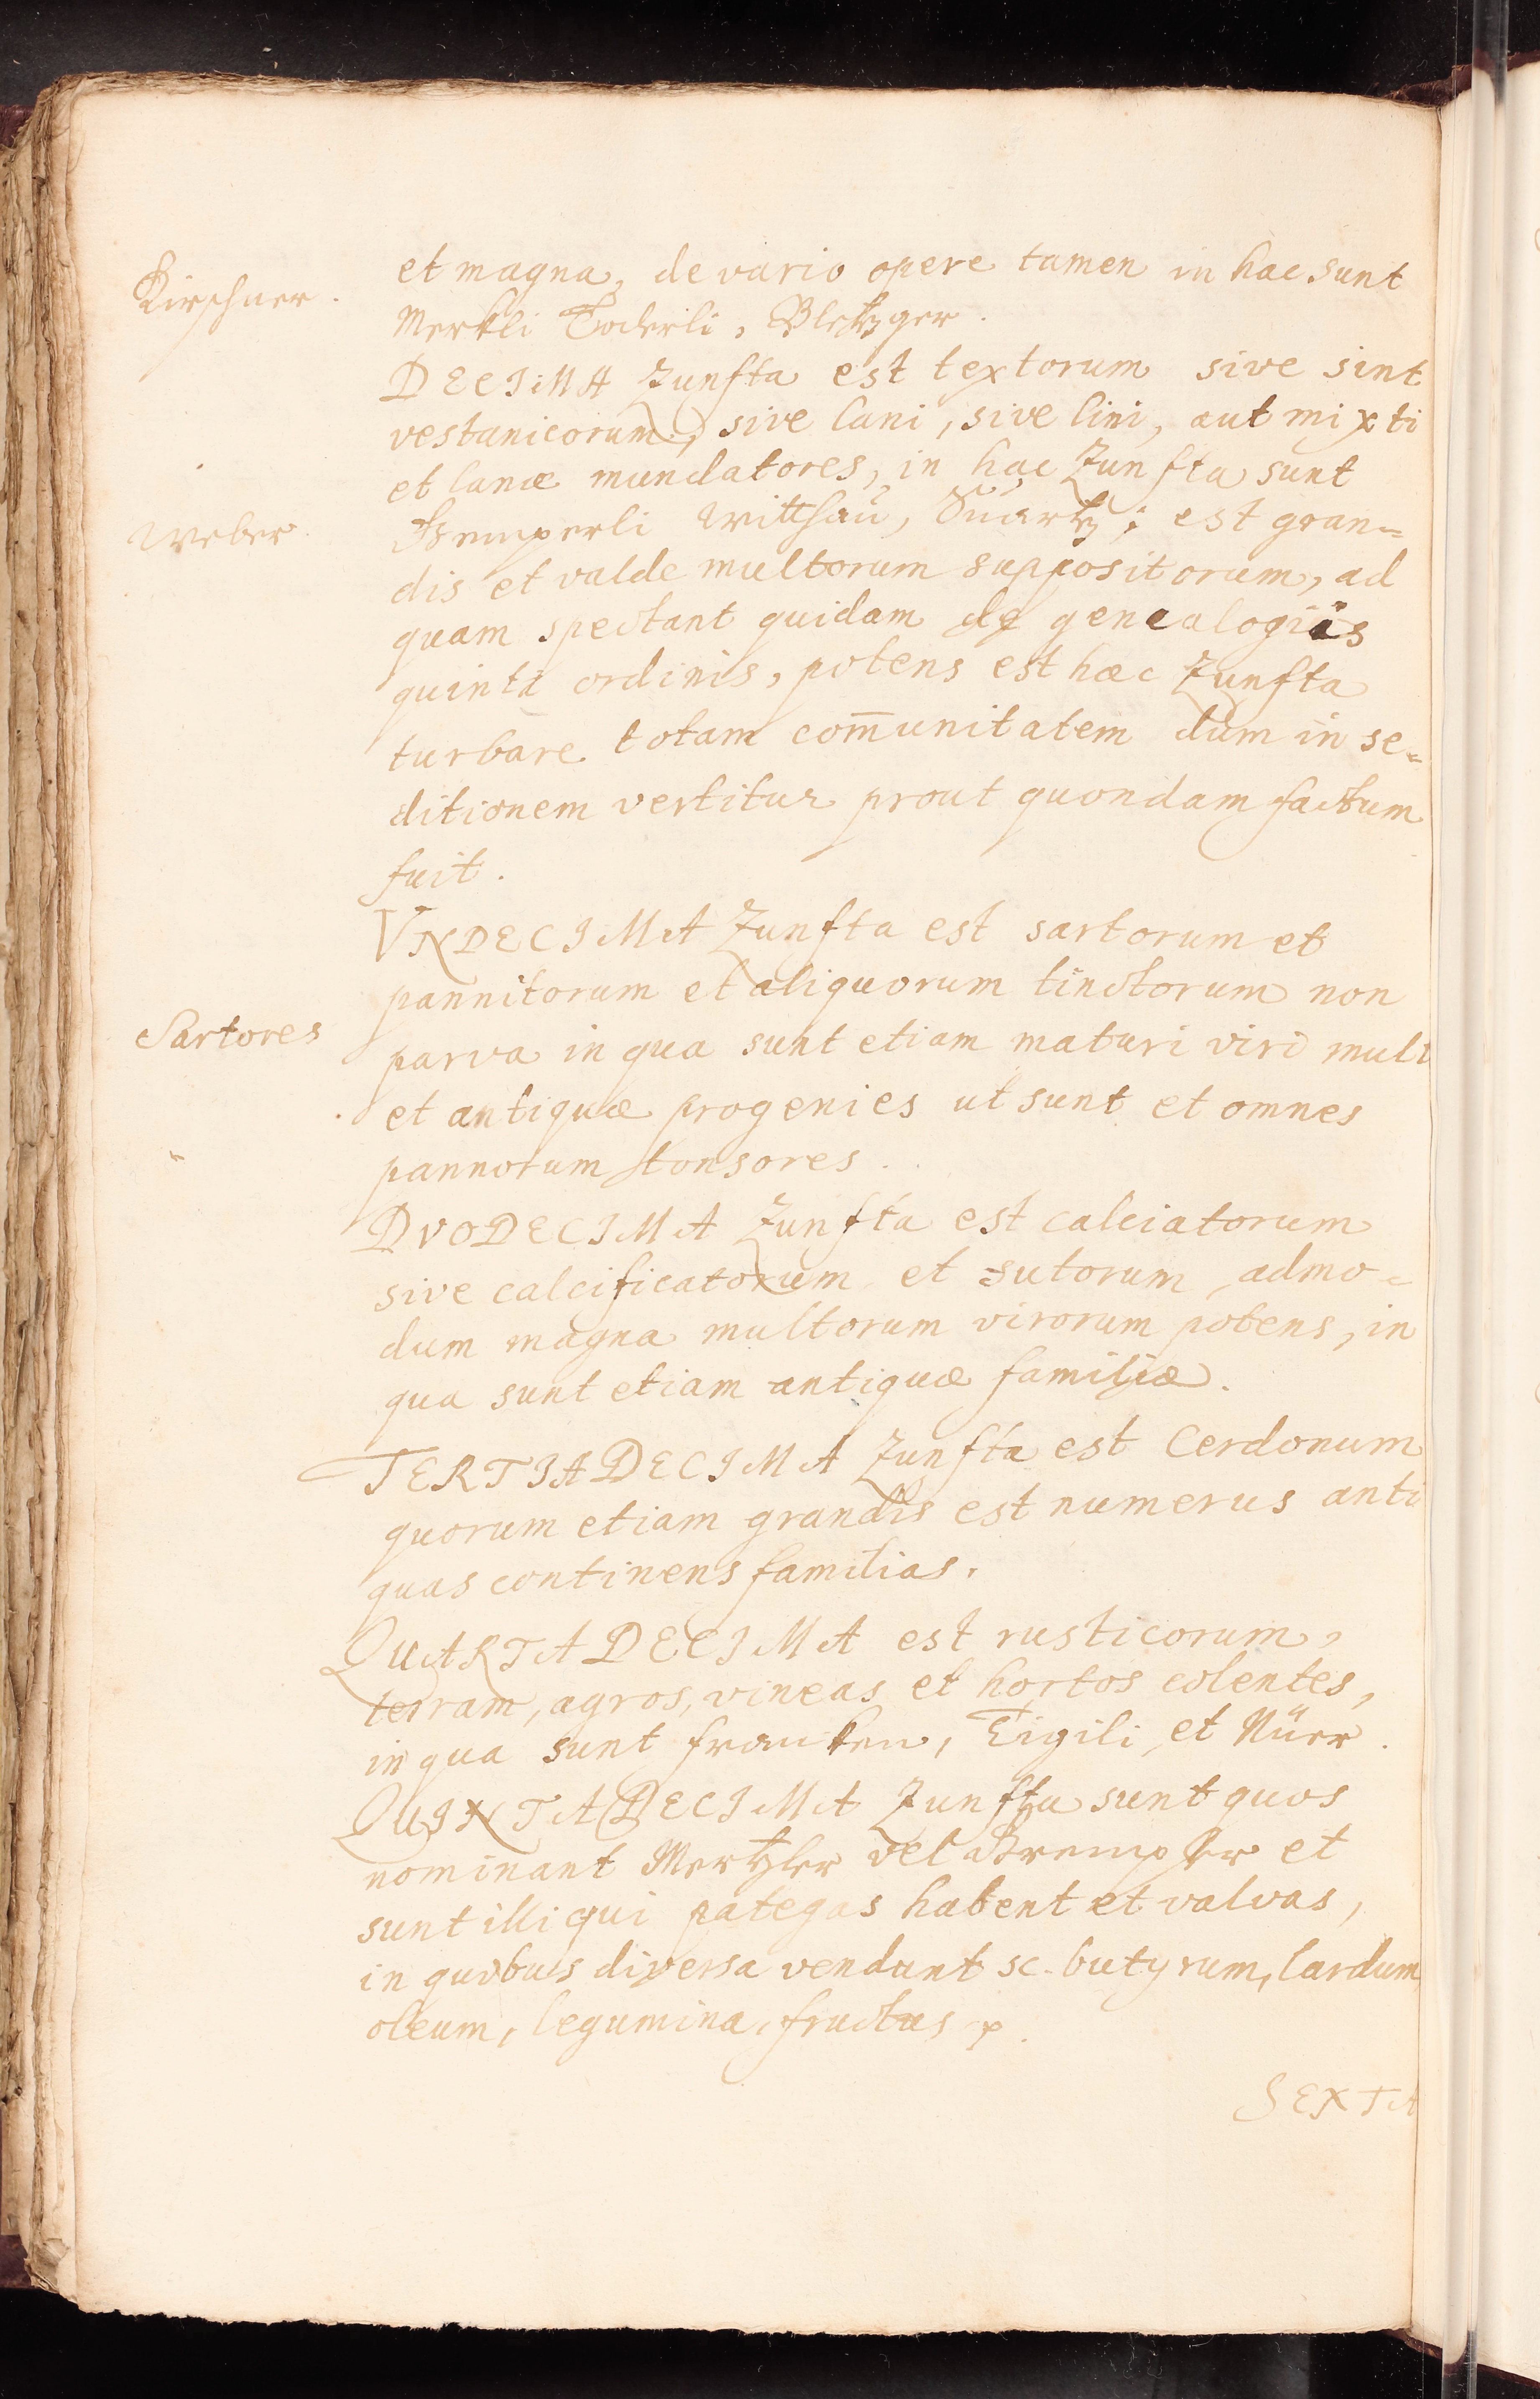 Kirschner.
et magna, de vario opere tamen in hac sunt
Merkli Toderli, Bletzger.
DECIMA Zunfta est textorum sive sint
vestanicorum, sive lani, sive lini, aut mixti
et lanæ mundatores, in hac Zunfta sunt
Weber.
Wittsau, Suartz; est gran=
dis et valde multorum suppositorum, ad
quam spectant quidam de genealogiis
quinti ordinis, potens est hæc Zunfta
turbare totam com̄unitatem dum in se=
ditionem vertitur prout quondam factum
fuit.
VNDECIMA Zunfta est sartorum et
pannitorum et aliquorum tinctorum non
Sartores
parva in qua sunt etiam maturi viri multi
et antiquæ progenies ut sunt et omnes
pannorum tonsores.
DVODECIMA Zunfta est calciatorum
sive calcificatorum et sutorum, admo=
dum magna multorum virorum potens, in
qua sunt etiam antiquæ familiæ.
TERTIADECIMA Zunfta est Cerdonum
quorum etiam grandis est numerus anti
quas continens familias.
QUARTADECIMA est rusticorum,
terram, agros, vineas et hortos colentes,
in qua sunt francken, Eigili et Nüer.
QUINTADECIMA Zunfta sunt quos
nominant Mertzler vel Grempler et
sunt illi qui pategas habent et valvas,
in quibus diversa vendunt sc. butyrum, lardum
oleum, legumina, fructus
SEXTA